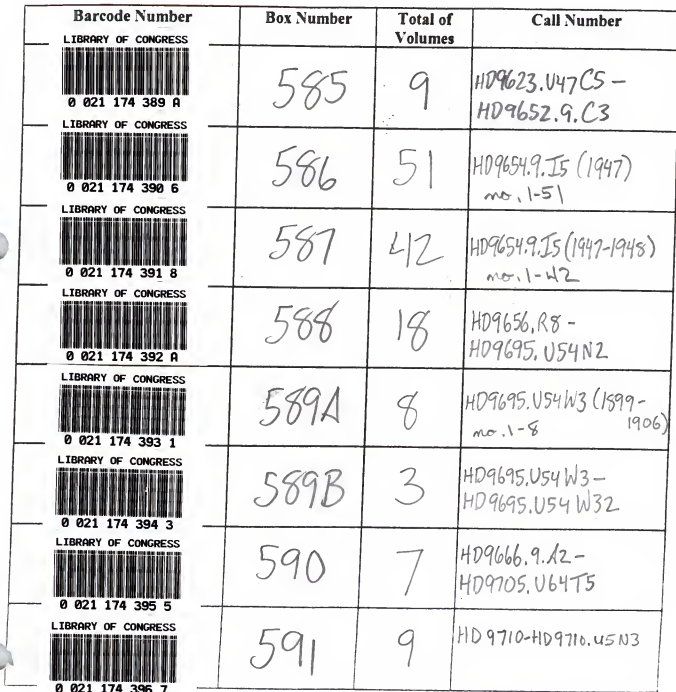 Barcode Number Box Number Total of Volumes Call Number
LIBRARY OF CONGRESS
0 021 174 389 A
585 9 HD9623.U47C5 –
HD9652.9.C3
LIBRARY OF CONGRESS
0 021 174 390 6
586 51 HD9654.9.I5 (1947)
no. 1-51
LIBRARY OF CONGRESS
0 021 174 391 8
587 42 HD9654.9.I5 (1947-1948)
no. 1-42
LIBRARY OF CONGRESS
0 021 174 392 A
588 18 HD9656.R8 -
HD9695.U54N2
LIBRARY OF CONGRESS
0 021 174 393 1
589A 8 HD9695.U54W3 (1899-
1906)
no. 1-8
LIBRARY OF CONGRESS
0 021 174 394 3
589B 3 HD9695.U54W3 –
HD9695.U54W32
LIBRARY OF CONGRESS
0 021 174 395 5
590 7 HD9666.9.A2 –
HD9705.U64T5
LIBRARY OF CONGRESS
0 021 174 396 7
591 9 HD9710-HD9710.U5N3